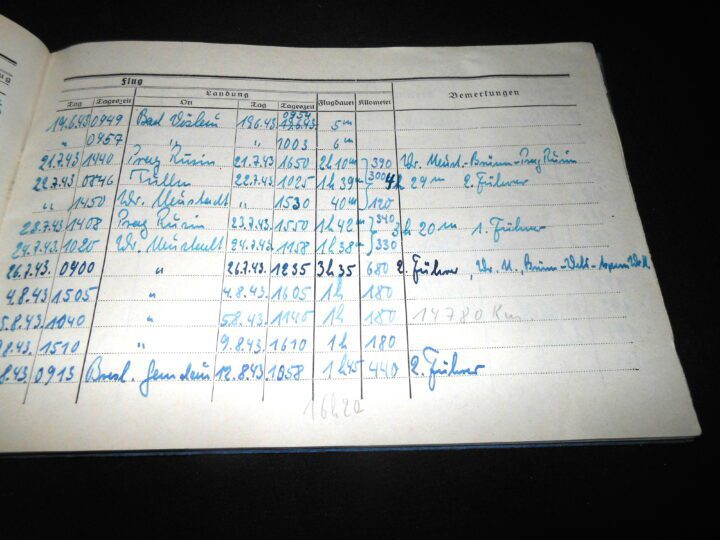 ug
Flug
Landung
Tag Tageszeit Ort Tag Tageszeit Flugdauer Kilometer Bemerkungen
19.6.43 0949 Bad Vöslau 19.6.43 0954 5m
" 0957 " " 1003 6m
21.7.43 1440 Prag Rusin 21.7.43 1650 2h 10m 390 Wr. Neust.-Brünn-Prag Rusin
22.7.43 0846 Tulln 22.7.43 1025 1h 39m 300 4h 29m 2. Führer
" 1450 Wr. Neustadt " 1530 40m 120
23.7.43 1408 Prag Rusin 23.7.43 1550 1h 42m 340 3h 20m 1. Führer
24.7.43 1020 Wr. Neustadt 24.7.43 1158 1h 38m 330
26.7.43. 0900 " 26.7.43. 1235 3h 35 680 2. Führer, Wr. N., Brünn-
4.8.43 1505 " 4.8.43 1605 1h 180
5.8.43. 1040 " 5.8.43. 1140 1h 180 14780 Km.
9.8.43. 1510 " 9.8.43 1610 1h 180
8.43. 0913 Bresl. Gandau 12.8.43. 1058 1h 45 440 2. Führer
16h20